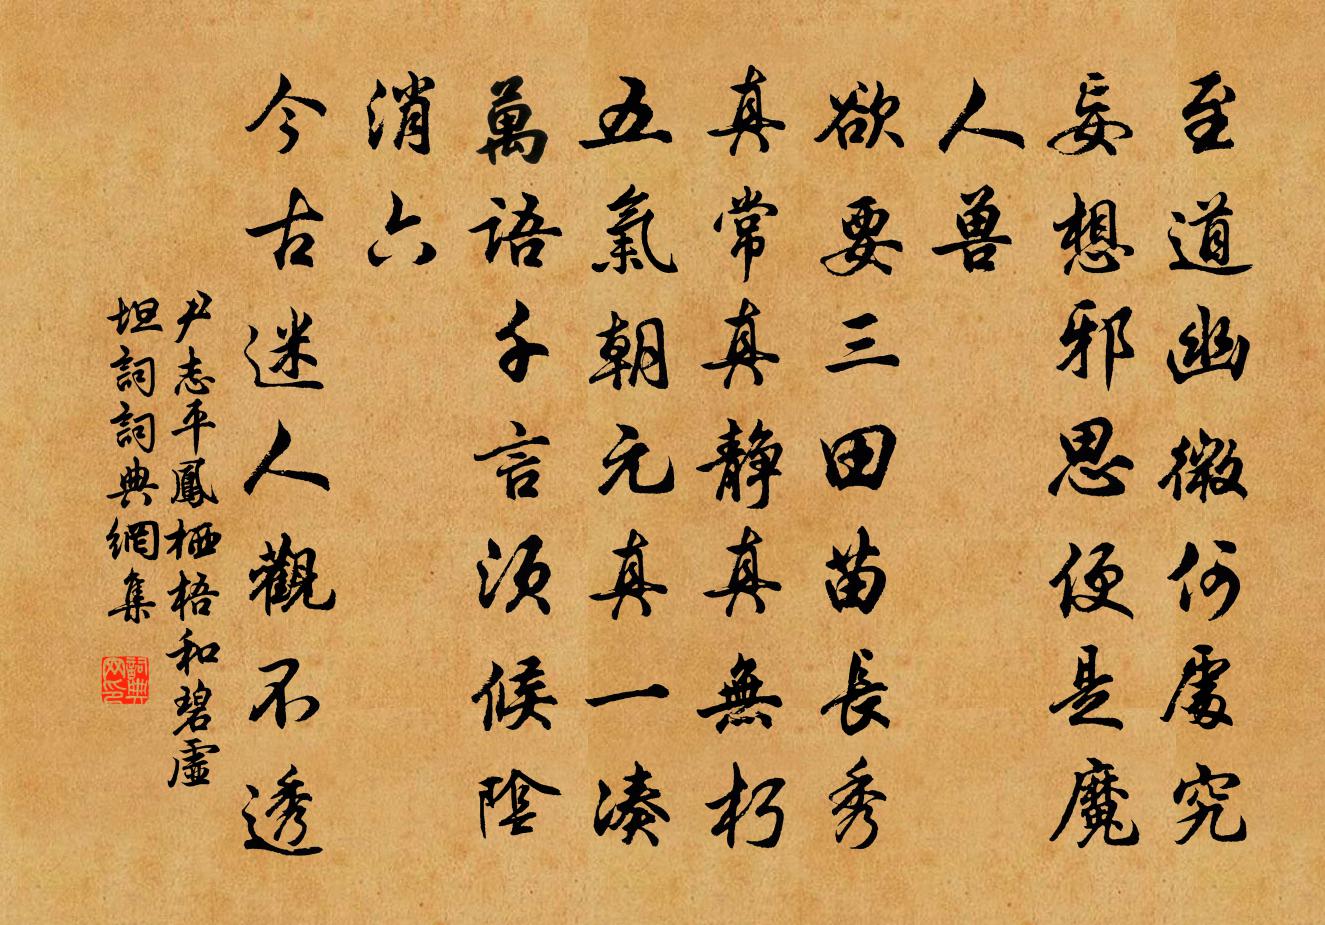 至道幽微何處究
妄想邪思便是魔
人兽
欲要三田苗長秀
真常真静真無朽
五氣朝元真一凑
萬語千言須候陰
消六
今古迷人觀不透
尹志平鳳栖梧和碧虛
坦詞詞典網集
詞典网印